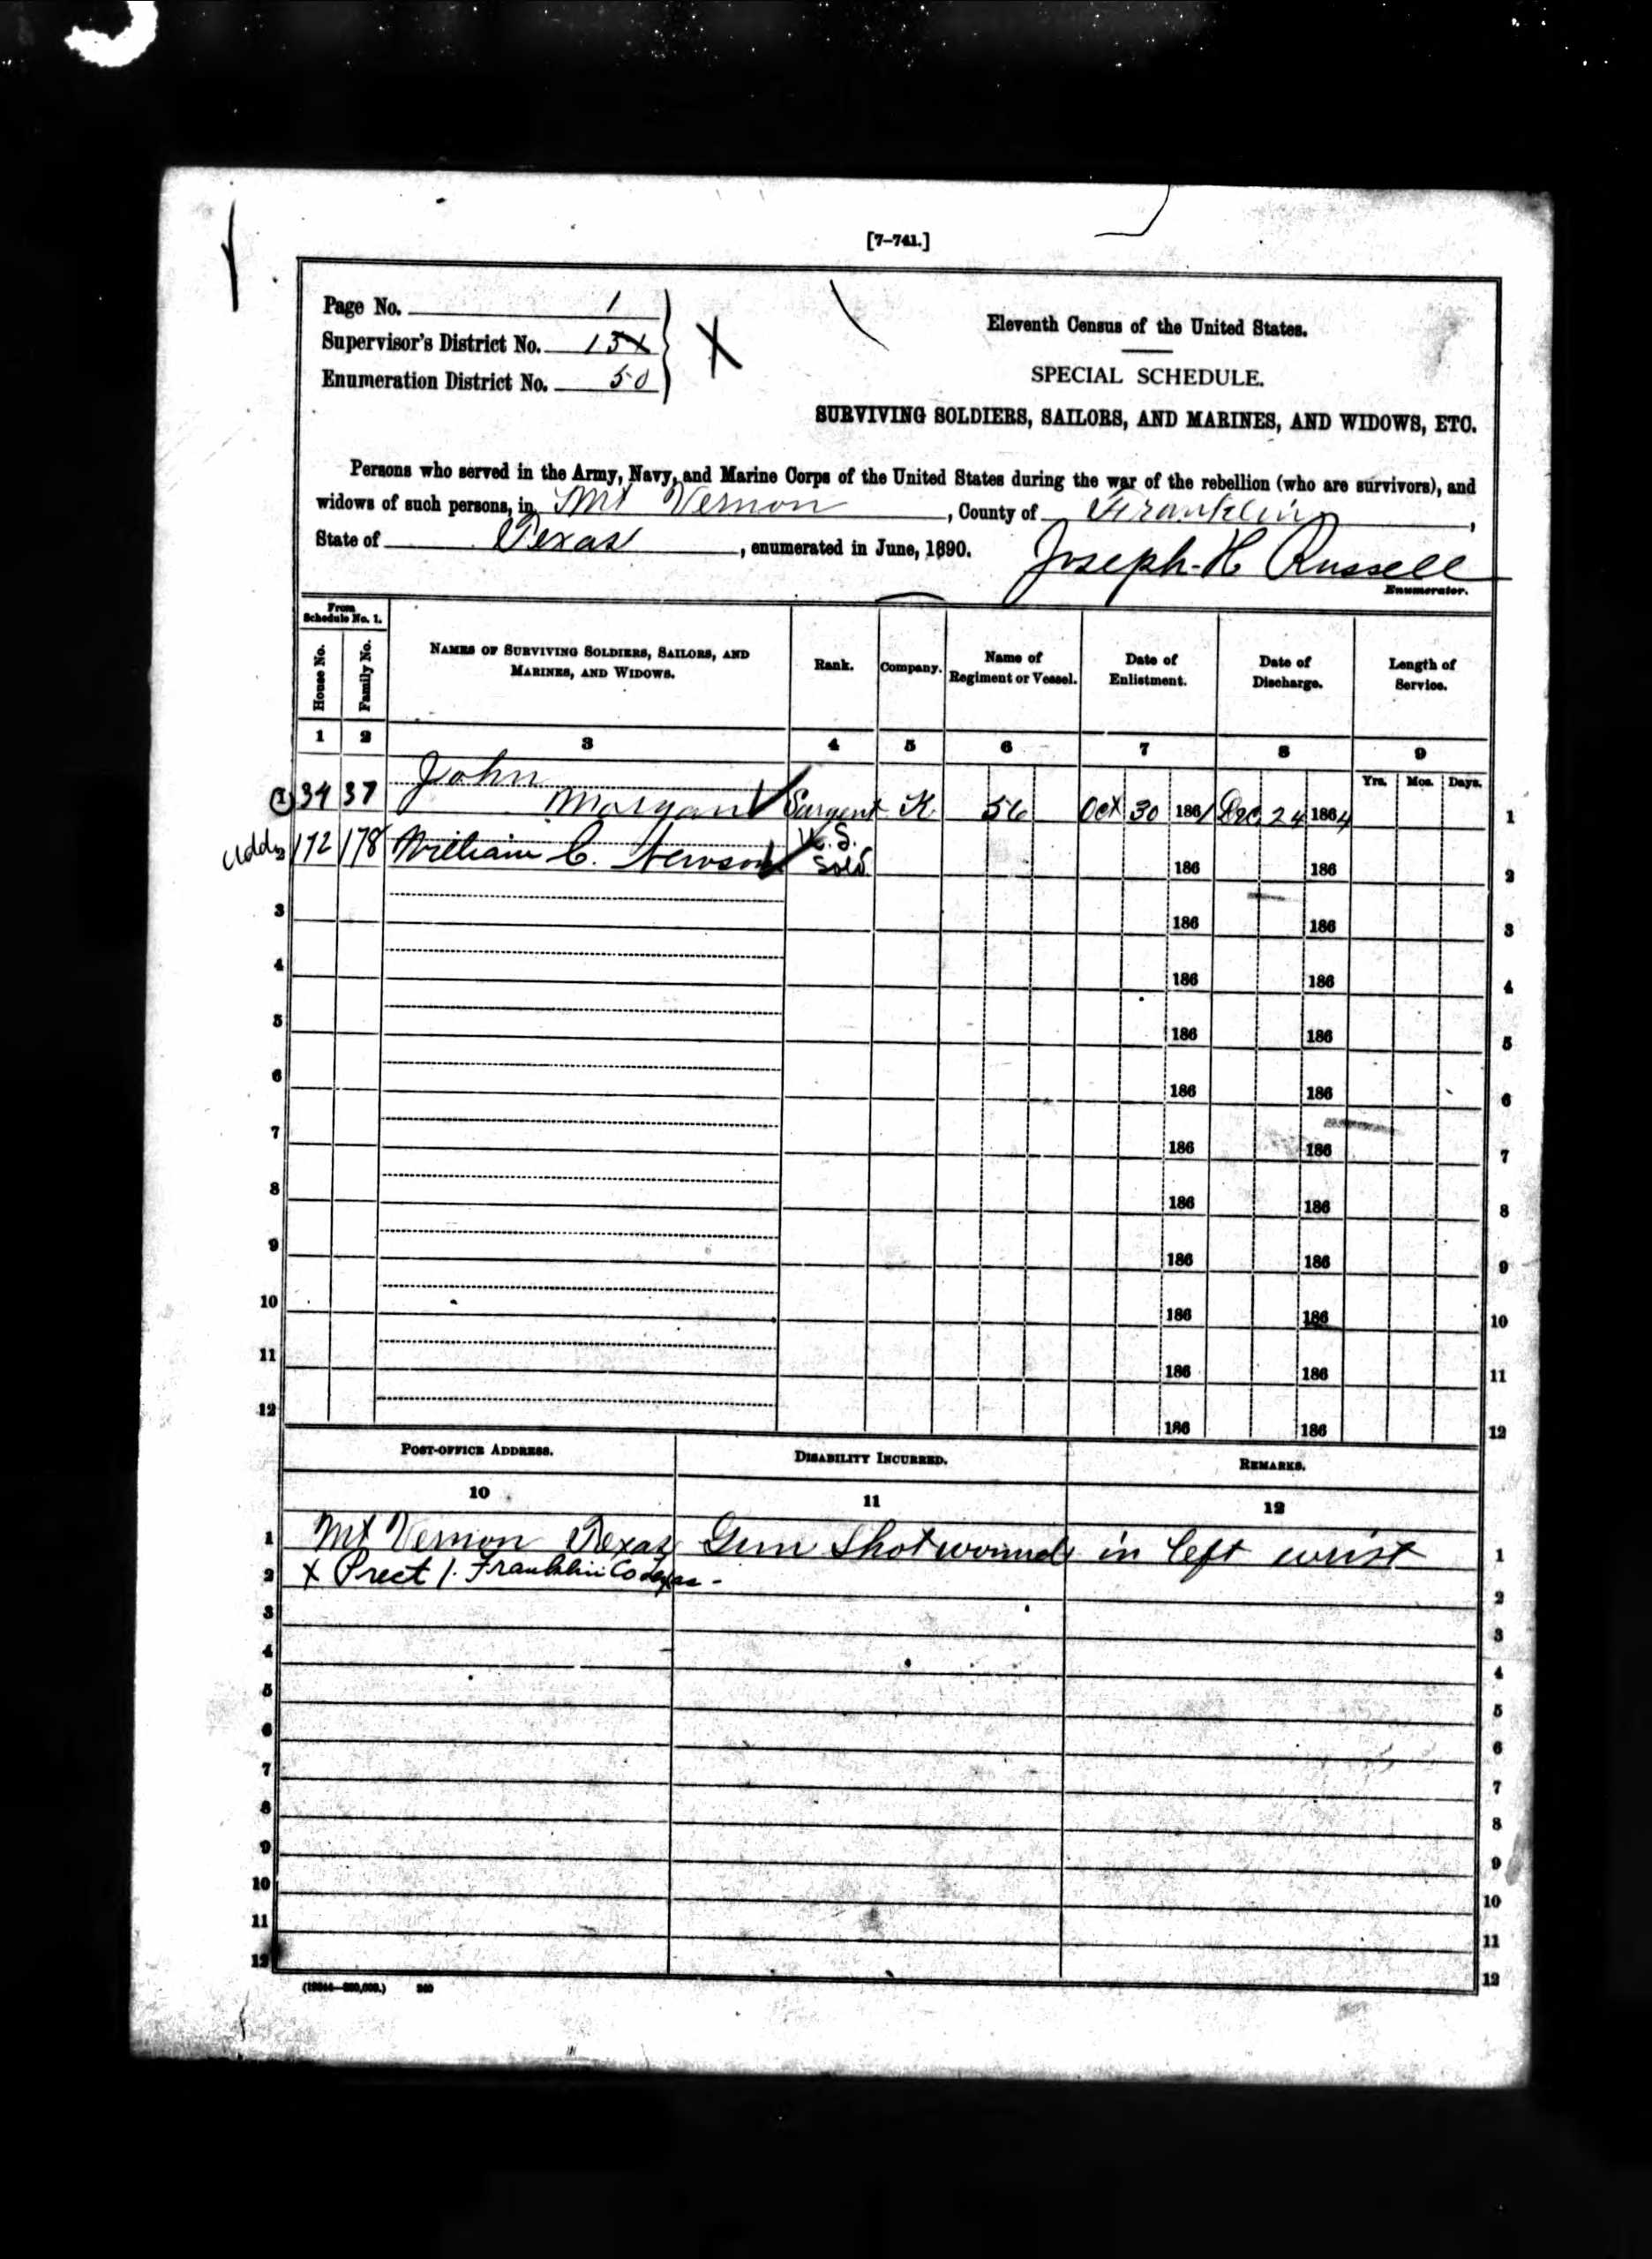 [7-741.]
Page No. 1
Supervisor's District No. 13
Enumeration District No. 50
X
Eleventh Census of the United States.
SPECIAL SCHEDULE.
SURVIVING SOLDIERS, SAILORS, AND MARINES, AND WIDOWS, ETC.
Persons who served in the Army, Navy, and Marine Corps of the United States during the war of the rebellion (who are survivors), and
widows of such persons, in Mt Vernon, County of Franklin,
State of Texas, enumerated in June, 1890. Joseph H Russell
Enumerator.
From Schedule No. 1.
House No. Family No. NAMES OF SURVIVING SOLDIERS, SAILORS, AND MARINES, AND WIDOWS. Rank. Company. Name of Regiment or Vessel. Date of Enlistment. Date of Discharge. Length of Service.
1 2 3 4 5 6 7 8 9
Yrs. Mos. Days.
John
1 34 37 Morgan Sargent K 56 Oct 30 1861 Dec 24 1864 1
2 172 178 William C. U.S. Sold. 186 186 2
3 186 186 3
4 186 186 4
5 186 186 5
6 186 186 6
7 186 186 7
8 186 186 8
9 186 186 9
10 186 186 10
11 186 186 11
12 186 186 12
POST-OFFICE ADDRESS. DISABILITY INCURRED. REMARKS.
10 11 12
1 Mt Vernon Texas Gun Shot wound in left wrist 1
2 X Prect 1. Franklin Co Texas - 2
3 3
4 4
5 5
6 6
7 7
8 8
9 9
10 10
11 11
12 12